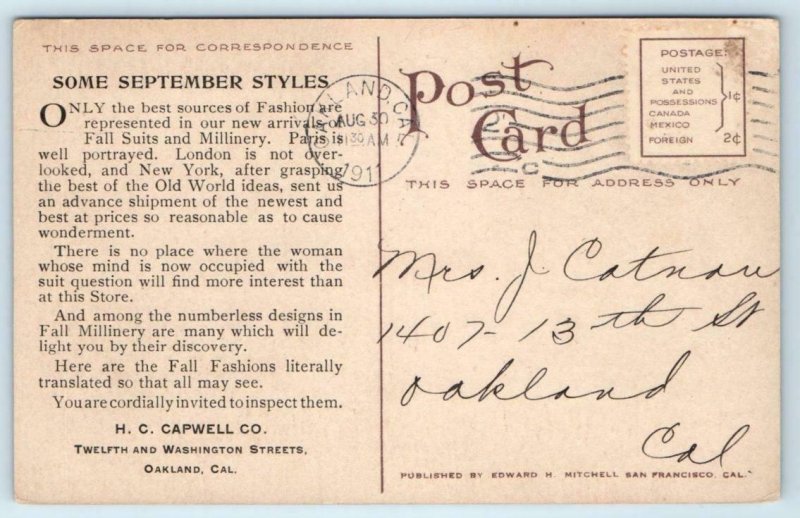 THIS SPACE FOR CORRESPONDENCE
SOME SEPTEMBER STYLES
ONLY the best sources of Fashion are
represented in our new arrivals of
Fall Suits and Millinery. Paris is
well portrayed. London is not over-
looked, and New York, after grasping
the best of the Old World ideas, sent us
an advance shipment of the newest and
best at prices so reasonable as to cause
wonderment.
There is no place where the woman
whose mind is now occupied with the
suit question will find more interest than
at this Store.
And among the numberless designs in
Fall Millinery are many which will de-
light you by their discovery.
Here are the Fall Fashions literally
translated so that all may see.
You are cordially invited to inspect them.
H. C. CAPWELL CO.
TWELFTH AND WASHINGTON STREETS,
OAKLAND, CAL.
AUG 30
30 AM
1911
Post
Card
THIS SPACE FOR ADDRESS ONLY
POSTAGE:
UNITED
STATES
AND
POSSESSIONS
CANADA
MEXICO
1¢
FOREIGN 2¢
Mrs. J. Catnau
1407-13th St
Oakland
Cal
PUBLISHED BY EDWARD H. MITCHELL SAN FRANCISCO, CAL.